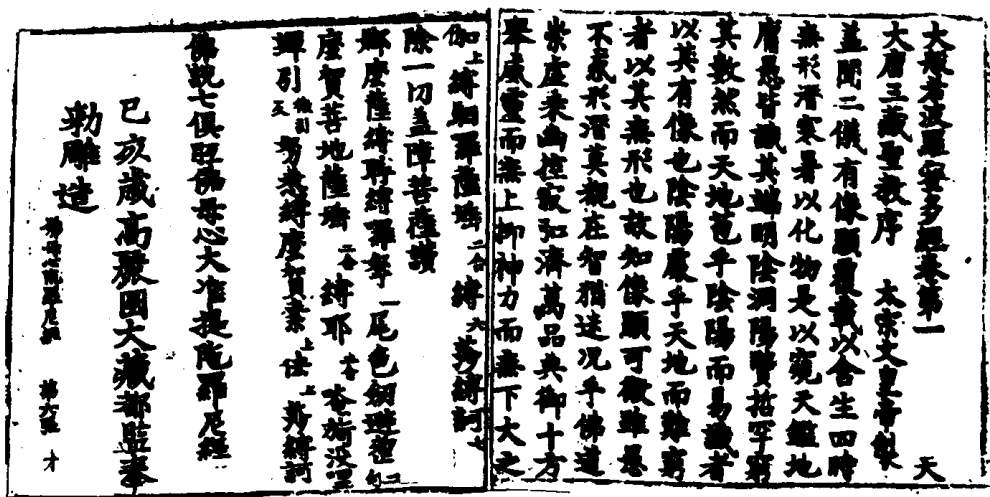 大般若波羅蜜多經卷第一 天
大唐三藏聖教序 太宗文皇帝製
盖聞二儀有像顯覆載以含生四時
無形潛寒暑以化物是以窺天鑑地
庸愚皆識其端明陰洞陽賢哲罕窮
其數然而天地苞乎陰陽而易識者
以其有像也陰陽處乎天地而難窮
者以其無形也故知像顯可徵雖愚
不惑形潛莫覩在智猶迷况乎佛道
崇虛乘幽控寂弘濟萬品典御十方
舉威靈而無上抑神力而無下大之
伽上縛馹羅薩埵二合縛六 縛訶七
除一切盖障菩薩讚
娜麽薩縛聹縛羅拏一尾色劒避 二句
麽賀菩地薩埵二合縛耶 唵 沒哩
佛說七俱胝佛母心大准提陁羅尼經
己亥歲高麗國大藏都監奉
勑雕造
第六張 才